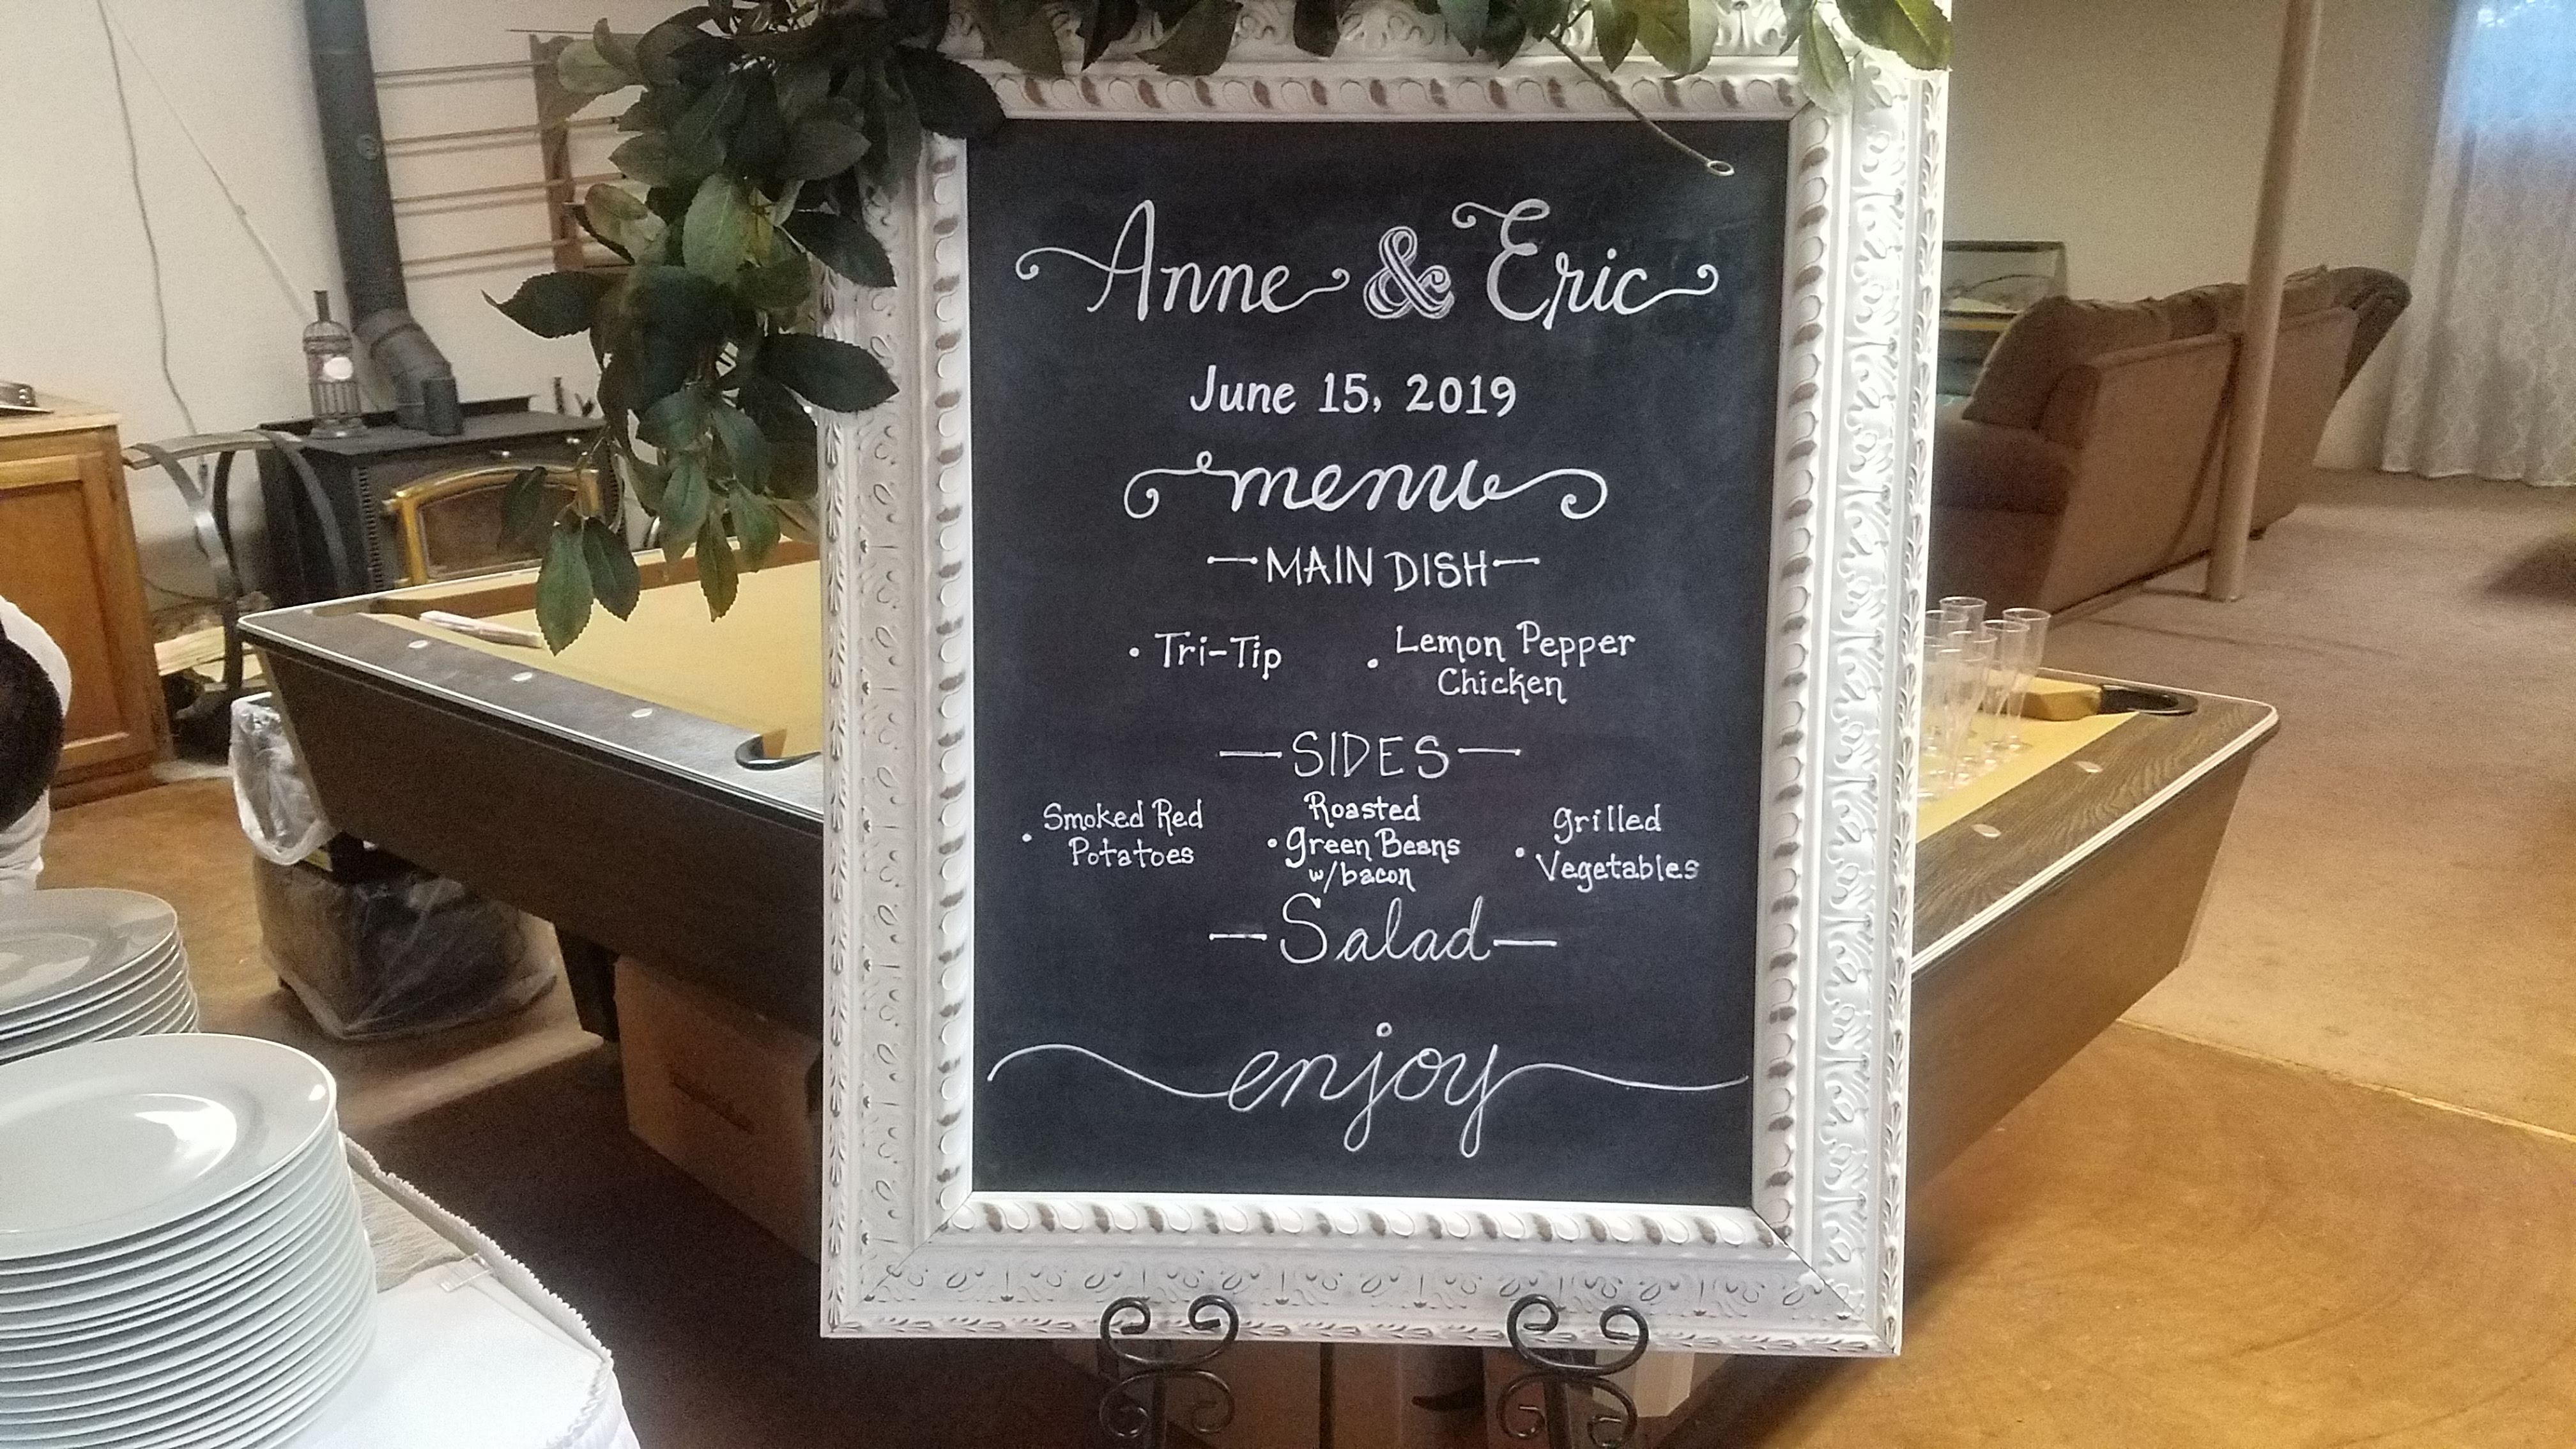 Anne & Eric
June 15, 2019
menu
—MAIN DISH—
• Tri-Tip
• Lemon Pepper
Chicken
—SIDES—
• Smoked Red
Potatoes
Roasted
• Green Beans
w/bacon
Grilled
• Vegetables
—Salad—
enjoy